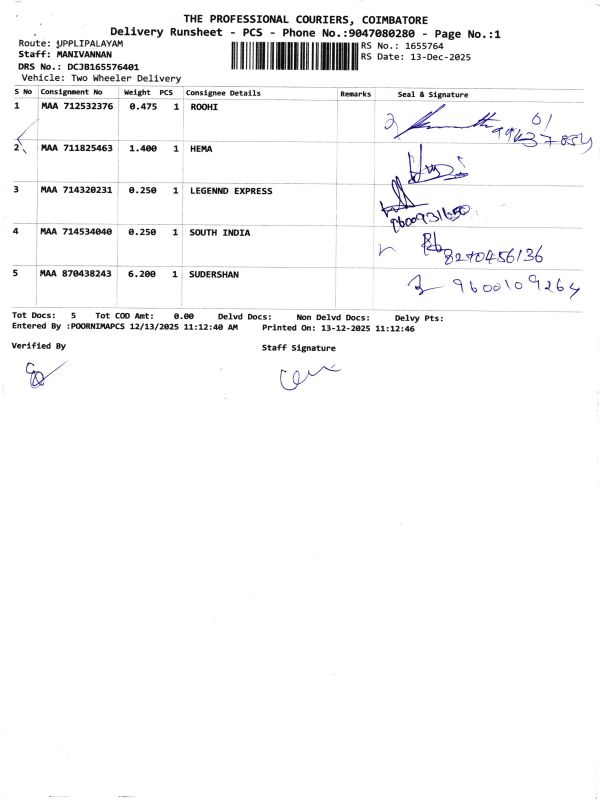 THE PROFESSIONAL COURIERS, COIMBATORE
Delivery Runsheet - PCS - Phone No.:9047080280 - Page No.:1
Route: UPPLIPALAYAM
RS No.: 1655764
Staff: MANIVANNAN
RS Date: 13-Dec-2025
DRS No.: DCJB165576401
Vehicle: Two Wheeler Delivery
S No Consignment No Weight PCS Consignee Details Remarks Seal & Signature
1 MAA 712532376 0.475 1 ROOHI
2 MAA 711825463 1.400 1 HEMA
3 MAA 714320231 0.250 1 LEGENND EXPRESS
4 MAA 714534040 0.250 1 SOUTH INDIA
8270456136
5 MAA 870438243 6.200 1 SUDERSHAN
9600109264
Tot Docs: 5 Tot COD Amt: 0.00 Delvd Docs: Non Delvd Docs: Delvy Pts:
Entered By :POORNIMAPCS 12/13/2025 11:12:40 AM Printed On: 13-12-2025 11:12:46
Verified By Staff Signature